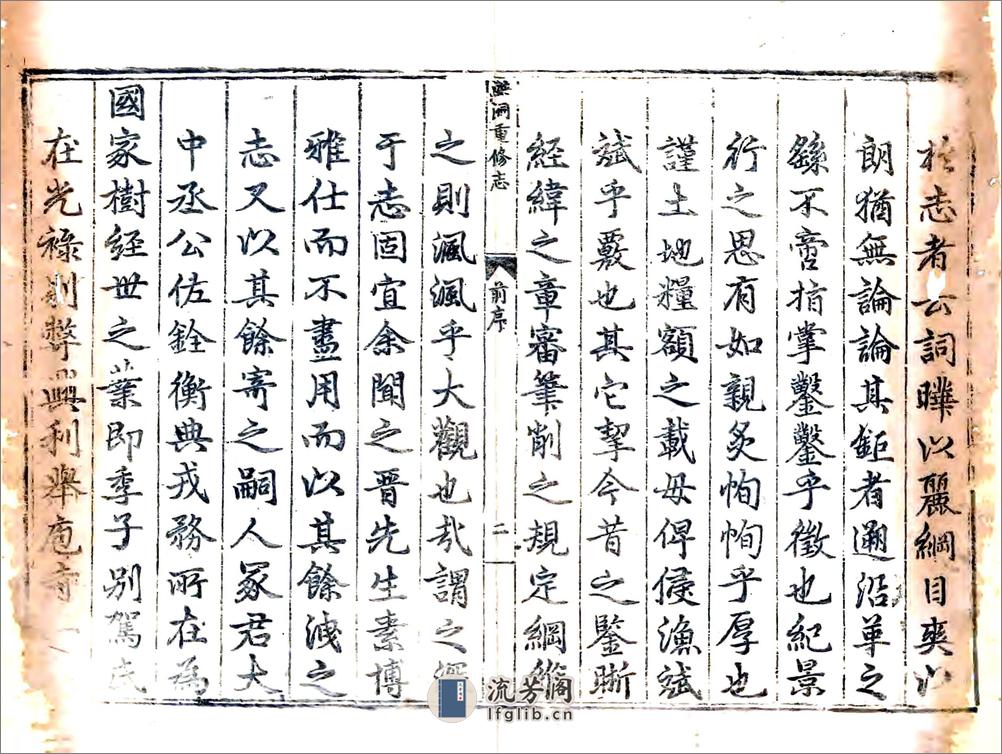 於志者云詞曄以麗綱目爽以
朗猶無論論其鉅者遡沿革之
繇不啻指掌鑿鑿乎徵也紀景
行之思有如親炙恂恂乎厚也
謹土地糧額之載毋俾侵漁斌
斌乎覈也其它挈今昔之鑒晰
經緯之章審筆削之規定綱維
無洞重修志
前序
二
之則渢渢乎大觀也哉謂之
于志固宜余聞之晋先生素博
雅仕而不盡用而以其餘洩之
志又以其餘寄之嗣人冢君大
中丞公佐銓衡典戎務所在為
國家樹經世之業即季子別駕氏
在光祿剔弊興利舉庖寺
流芳阁
lfglib.cn